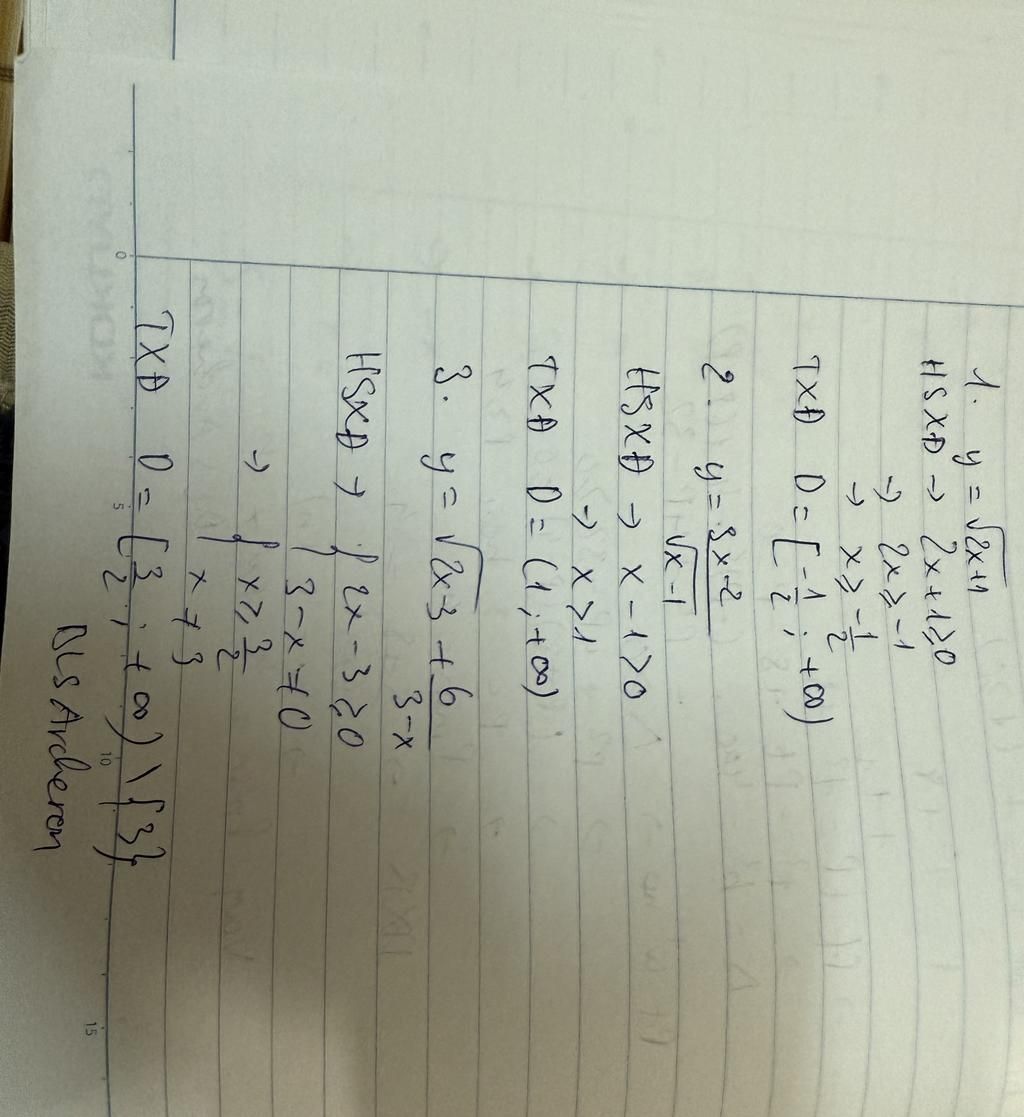 1. y = √2x+1
HSXĐ → 2x+1≥0
→ 2x ≥ -1
→ x ≥ -1/2
TXĐ D = [-1/2 ; +∞)
2. y = 3x-2/√x-1
HSXĐ → x-1>0
→ x>1
TXĐ D = (1 ; +∞)
3. y = √2x-3 + 6/3-x
HSXĐ → { 2x-3 ≥ 0
3-x ≠ 0
→ { x ≥ 3/2
x ≠ 3
TXĐ D = [3/2 ; +∞) \ {3}
DLS Archeron
0
5
10
15